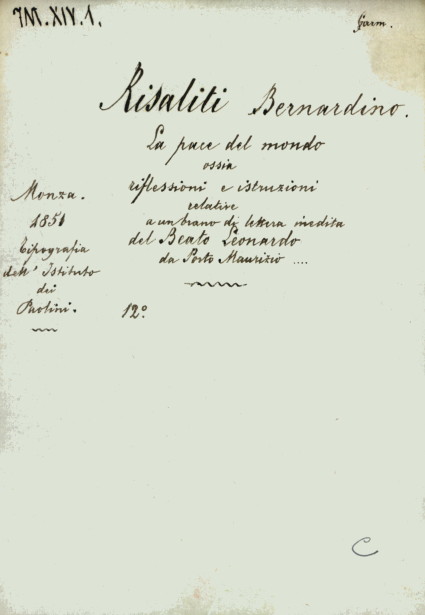 M.XIV.1.
Risaliti Bernardino.
La pace del mondo
ossia
riflessioni e istruzioni
relative
a un brano di lettera inedita
del Beato Leonardo
da Porto Maurizio ....
Monza.
1851
Tipografia
dell' Istituto
dei
Paolini.
12º
C